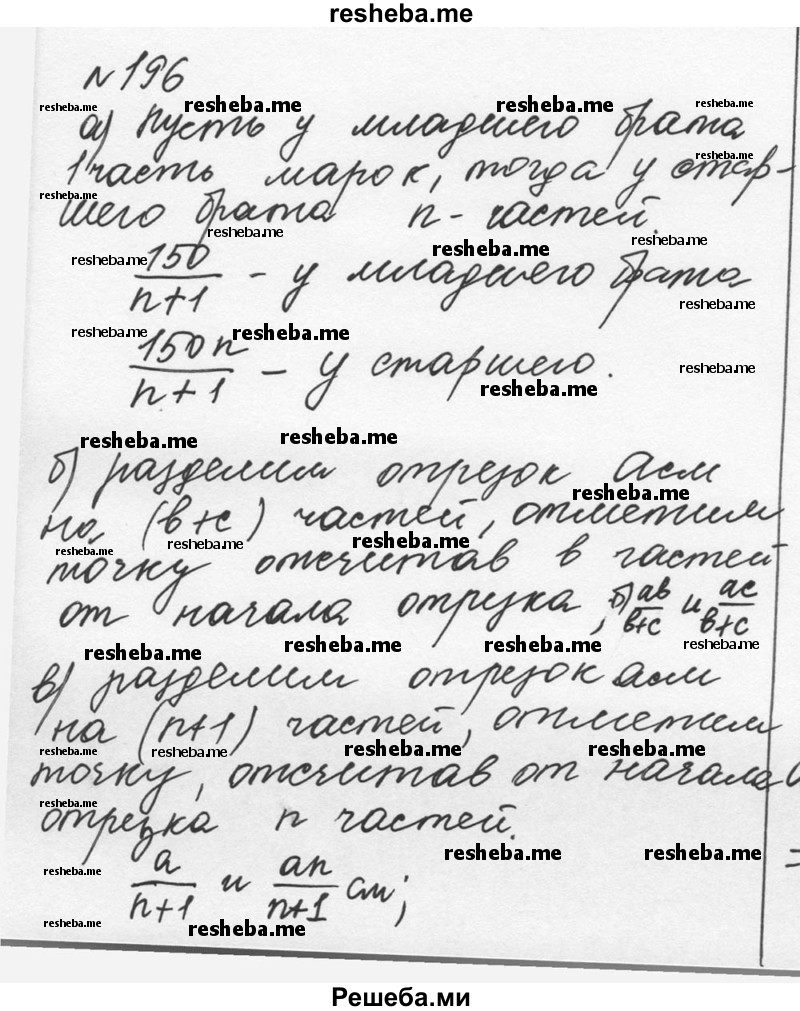 resheba.me
№196
resheba.me resheba.me resheba.me resheba.me
а) Пусть у младшего брата
resheba.me
1 часть марок, тогда у стар-
resheba.me
шего брата n - частей.
resheba.me resheba.me
resheba.me resheba.me
150/(n+1) - у младшего брата
resheba.me
resheba.me resheba.me
150n/(n+1) - у старшего.
resheba.me resheba.me
resheba.me resheba.me
б) разделим отрезок а см
resheba.me
на (в+с) частей, отметим
resheba.me resheba.me resheba.me
точку отсчитав в частей
от начала отрезка, б) ав/(в+с) и ас/(в+с)
resheba.me resheba.me resheba.me resheba.me
в) разделим отрезок а см
на (n+1) частей, отметим
resheba.me resheba.me resheba.me resheba.me
точку, отсчитав от начала
resheba.me
отрезка n частей.
resheba.me resheba.me
resheba.me
а/(n+1) и an/(n+1) см;
resheba.me resheba.me
Решеба.ми